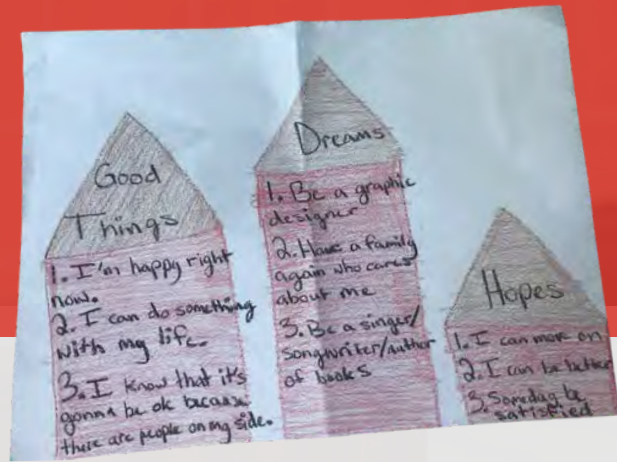 Good
Things
1. I'm happy right
now.
2. I can do something
with my life.
3. I know that it's
gonna be ok because
there are people on my side.
Dreams
1. Be a graphic
designer
2. Have a family
again who cares
about me
3. Be a singer/
songwriter/author
of books
Hopes
1. I can move on
2. I can be better
3. Someday be
satisfied